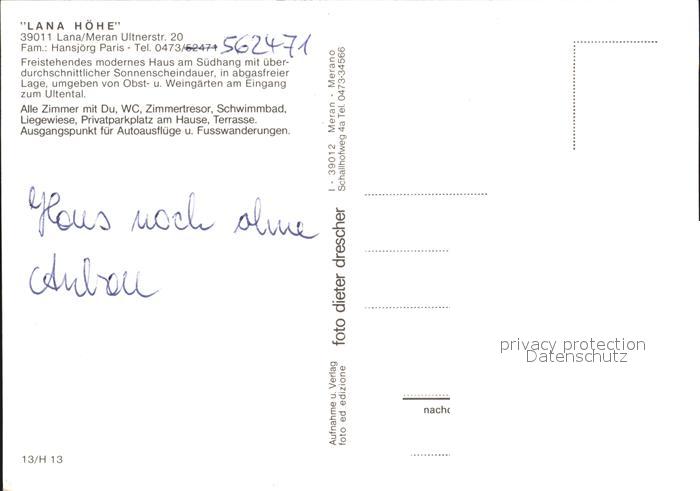 "LANA HÖHE"
39011 Lana/Meran Ultnerstr. 20
Fam.: Hansjörg Paris - Tel. 0473/52471 562471
Freistehendes modernes Haus am Südhang mit über-
durchschnittlicher Sonnenscheindauer, in abgasfreier
Lage, umgeben von Obst- u. Weingärten am Eingang
zum Ultental.
Alle Zimmer mit Du, WC, Zimmertresor, Schwimmbad,
Liegewiese, Privatparkplatz am Hause, Terrasse.
Ausgangspunkt für Autoausflüge u. Fusswanderungen.
Haus noch ohne
Anbau
13/H 13
I - 39012 Meran - Merano
Schallhofweg 4a Tel. 0473-34566
foto dieter drescher
Aufnahme u. Verlag
foto ed edizione
privacy protection
Datenschutz
nachc